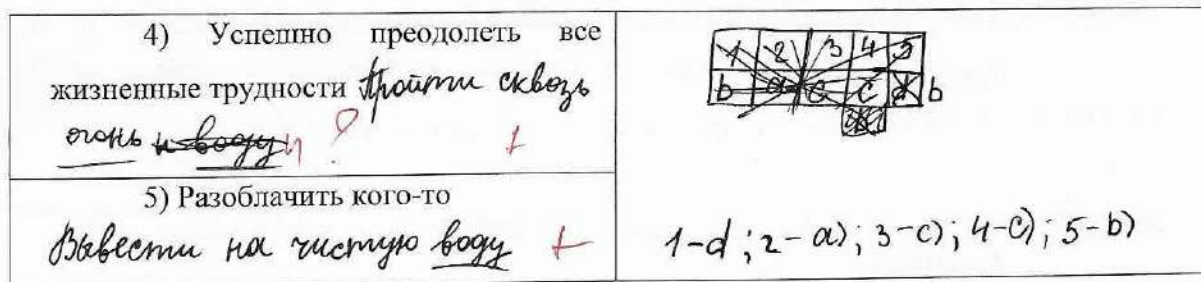 4) Успешно преодолеть все
жизненные трудности Пройти сквозь
огонь и воду и ? +
5) Разоблачить кого-то
Вывести на чистую воду +
1 2 3 4 5
b a c c d b
1-d ; 2-a) ; 3-c) ; 4-c) ; 5-b)